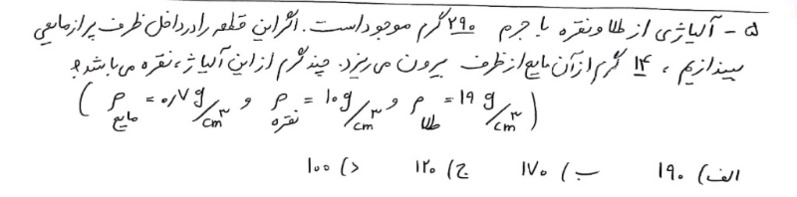 ۵ - آلیاژی از طلا و نقره با جرم ۲۹۰ گرم موجود است. اگر این قطعه را در داخل ظرف پر از مایعی
بیندازیم، ۱۴ گرم از آن مایع از ظرف بیرون می‌ریزد. چند گرم از این آلیاژ، نقره می‌باشد؟
( ρ مایع = ۰/۷ g/cm۳ و ρ نقره = ۱۰ g/cm۳ و ρ طلا = ۱۹ g/cm۳ )
الف) ۱۹۰ ب) ۱۷۰ ج) ۱۲۰ د) ۱۰۰